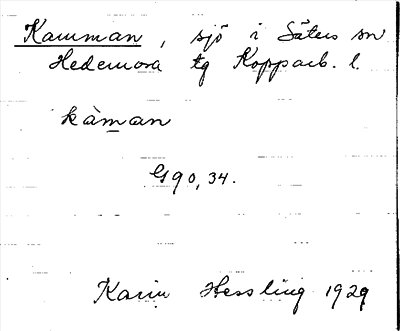 Kamman, sjö i Säters sn
Hedemora tg Kopparb. l.
kàman
G 90, 34.
Karin Hessling 1929